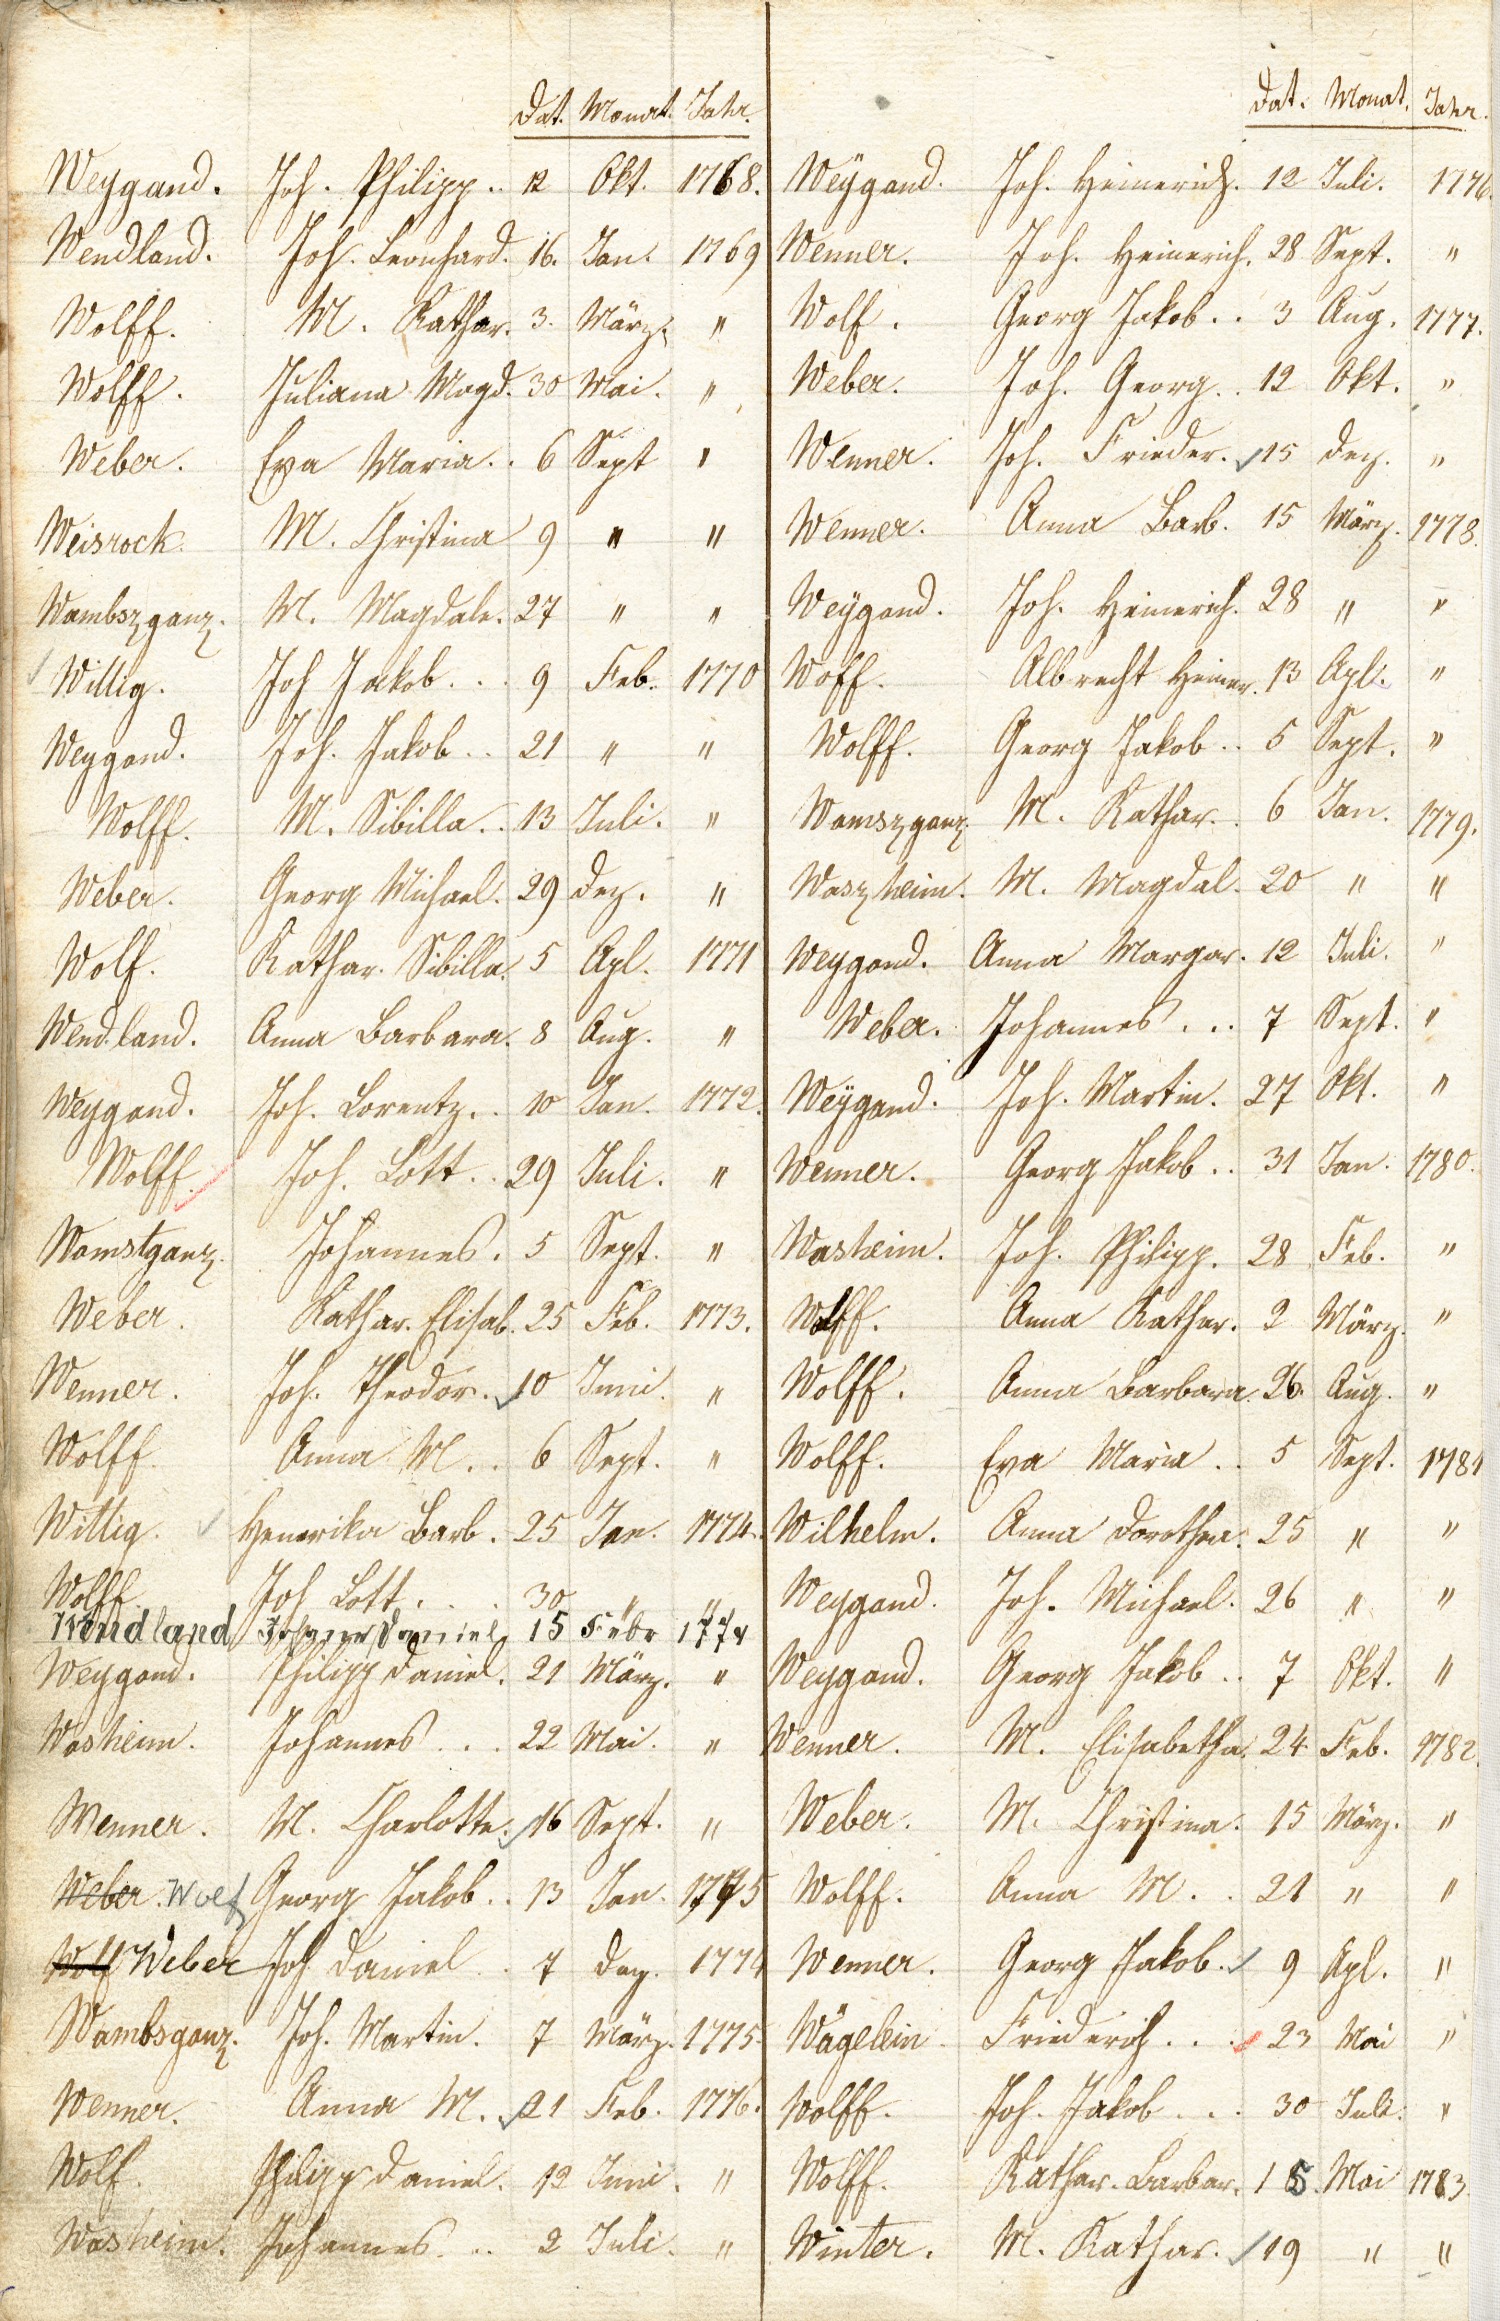 Dat. Monat. Jahr.
Weygand. Joh. Philipp .. 12 Okt. 1768.
Wendland. Joh. Leonhard. 16. Jan. 1769
Wolff. M. Kathar. 3. März. "
Wolff. Juliana Magd. 30 Mai. "
Weber. Eva Maria .. 6 Sept "
Weisrock. M. Christina 9 " "
Wambszganz. M. Magdale. 27 " "
Wittig. Joh Jakob ... 9 Feb. 1770
Weygand. Joh. Jakob .. 21 " "
Wolff. M. Sibilla .. 13 Juli. "
Weber. Georg Michael. 29 Dez. "
Wolf. Kathar. Sibilla. 5 Apl. 1771
Wendland. Anna Barbara. 8 Aug. "
Weygand. Joh. Lorentz .. 10 Jan. 1772.
Wolff. Joh. Lott .. 29 Juli. "
Wamstganz. Johannes. 5 Sept. "
Weber. Kathar. Elisab. 25 Feb. 1773.
Wenner. Joh. Theodor. 10 Juni. "
Wolff. Anna M. . 6 Sept. "
Wittig. Henerika Barb. 25 Jan. 1774.
Wolff. Joh Lott ... 30 " "
Wendland Johann Daniel 15 Febr 1774
Weygand. Philipp Daniel. 21 März. "
Washeim. Johannes ... 22 Mai. "
Wenner. M. Charlotte. 16 Sept. "
Weber. Wolf Georg Jakob .. 13 Jan. 1775
Wolf Weber Joh Daniel .. 7 Dez. 1774
Wambsganz. Joh. Martin. 7 März. 1775.
Wenner. Anna M. 21 Feb. 1776.
Wolf. Philipp Daniel. 12 Juni. "
Washeim. Johannes .. 2 Juli. "
Dat. Monat. Jahr.
Weÿgand. Joh. Heinerich. 12 Juli. 1776.
Wenner. Joh. Heinerich. 28 Sept. "
Wolf. Georg Jakob .. 3 Aug. 1777.
Weber. Joh. Georg .. 12 Okt. "
Wenner. Joh. Frieder. 15 Dez. "
Wenner. Anna Barb. 15 März. 1778.
Weÿgand. Joh. Heinerich. 28 " "
Woff. Albrecht Heiner. 13 Apl. "
Wolff. Georg Jakob .. 5 Sept. "
Wamszganz. M. Kathar. . 6 Jan. 1779.
Waszheim. M. Magdal. 20 " "
Weygand. Anna Margar. 12 Juli. "
Weber. Johannes ... 7 Sept. "
Weÿgand. Joh. Martin. 27 Okt. "
Wenner. Georg Jakob .. 31 Jan. 1780.
Washeim. Joh. Philipp. 28 Feb. "
Wolff. Anna Kathar. 2 März. "
Wolff. Anna Barbara. 26. Aug. "
Wolff. Eva Maria .. 5 Sept. 1781
Wilhelm. Anna Dorothea. 25 " "
Weygand. Joh. Michael. 26 " "
Weygand. Georg Jakob .. 7 Okt. "
Wenner. M. Elisabetha. 24 Feb. 1782.
Weber. M. Christina. 15 März. "
Wolff. Anna M. . 21 " "
Wenner. Georg Jakob. 9 Apl. "
Wägelein Friederich ... 23 Mai "
Wolff. Joh. Jakob ... 30 Juli. "
Wolff. Kathar. Barbar. 15. Mai 1783.
Winter. M. Kathar. 19 " "